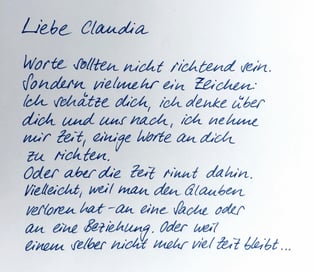 Liebe Claudia
Worte sollten nicht richtend sein.
Sondern vielmehr ein Zeichen:
Ich schätze dich, ich denke über
dich und uns nach, ich nehme
mir Zeit, einige Worte an dich
zu richten.
Oder aber die Zeit rinnt dahin.
Vielleicht, weil man den Glauben
verloren hat - an eine Sache oder
an eine Beziehung. Oder weil
einem selber nicht mehr viel Zeit bleibt...